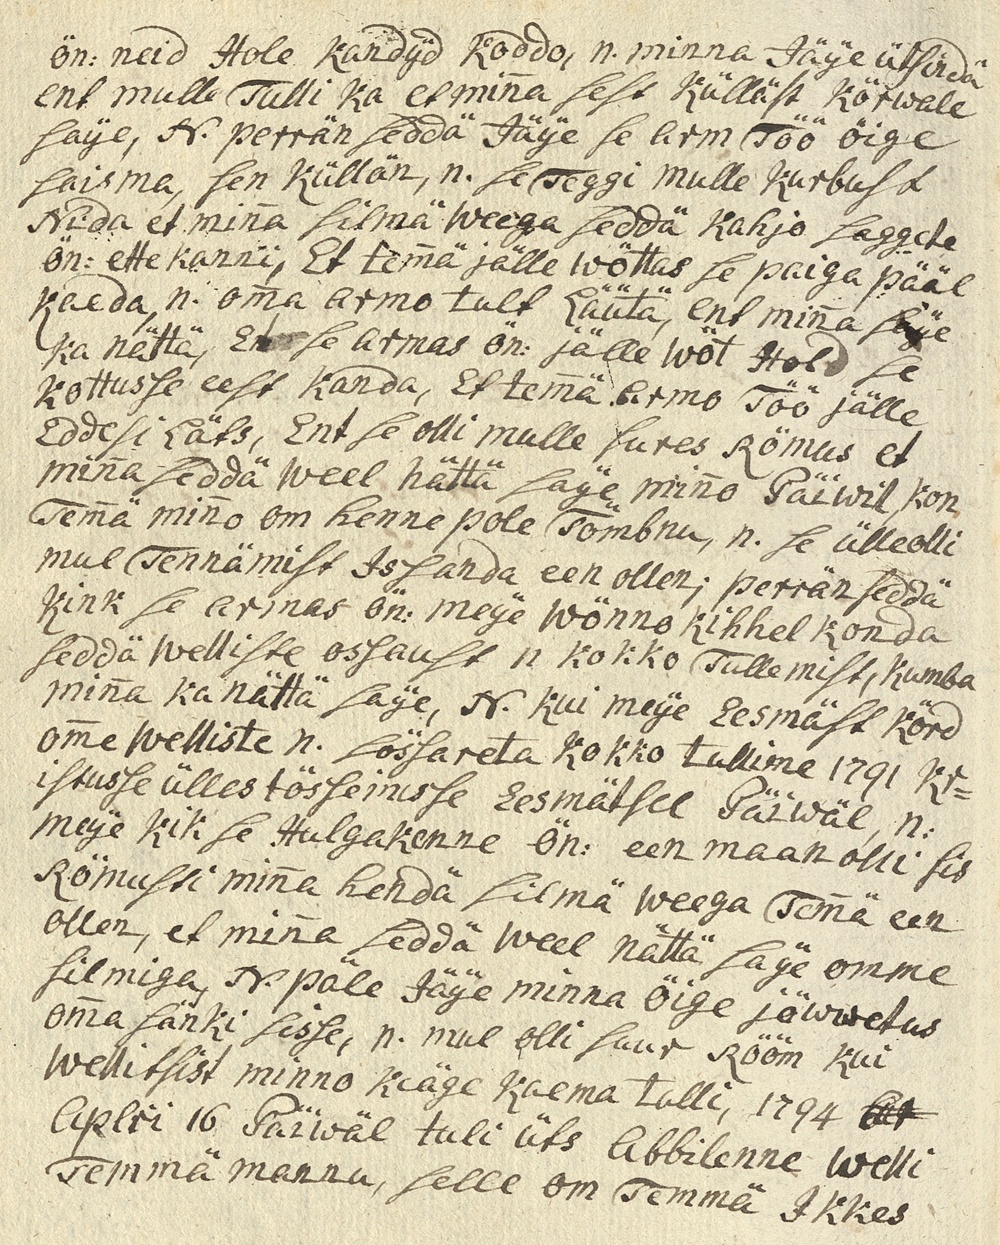 Ön: neid Hole kandӱd koddo, n. minna Jäÿe ütsindä
ent mulle Tulli ka et miña sest Külläst körwale
saÿe, N. perrän seddä Jäÿe se arm Töö öige
saisma, sen Küllän, n. se Teggi mulle kurbust
Nida et miña silmä weega seddä kahjo saggete
ön: ette kanni, Et tem̃ä jälle wöttas se paiga pääl
kaeda, n. om̃a armo tult Läütä, ent miña saÿe
ka nättä, Et se armas ön: jälle wöt Hold se
kottusse eest kanda, Et tem̃ä armo Töö jälle
Eddesi Läts, Ent se olli mulle sures Römus et
miña seddä weel nättä saÿe miño Päiwil, kon
Tem̃ä miño om henne pole Tömbnu, n. se ülle olli
mul Tennämist Issanda een ollen; perrän seddä
kink se armas ön: meÿe wönno kihhelkonda
seddä welliste ossaust n kokko Tullemist, kumba
miña ka nättä saÿe, N. kui meÿe Eesmäst körd
om̃e welliste n. sössareta kokko tullime 1791 kr=
istusse ülles tösseinisse Eesmätsel Päiwäl, n:
meÿe kik se Hulgakenne Ön: een maan olli sis
Römusti miña hendä silmä weega Tem̃ä een
ollen, et miña seddä weel nättä saÿe omme
silmiga, N. päle Jäÿe minna öige jöwwetus
om̃a sänki sisse, n. mul olli suur Rööm kui
wellitsist minno kiäge kaema tulli, 1794
Aplri 16 Päiwäl tuli üts Abbilenne welli
Temmä mannu, selle om Temmä Ikkes